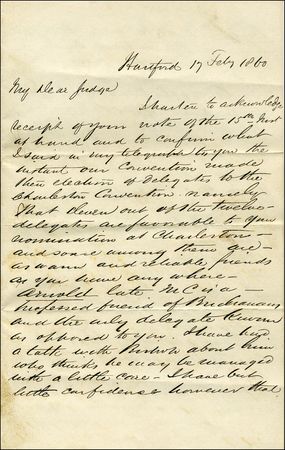 Hartford 17 Feby 1860
My Dear Judge
I hasten to acknowledge
receipt of your note of the 15th Inst
at hand and to confirm what
I said in my telegraph to you the
instant our Convention made
their election of Delegates to the
Charleston Convention namely
That eleven out of the twelve
delegates are favorable to your
nomination at Charleston—
and some among them are
as warm and reliable friends
as you have any where
Arnold late M C is a
professed friend of Buchanans
and the only delegate known
as opposed to you. I have had
a talk with Bishop about him
who thinks he may be managed
with a little care— I have but
little confidence however that